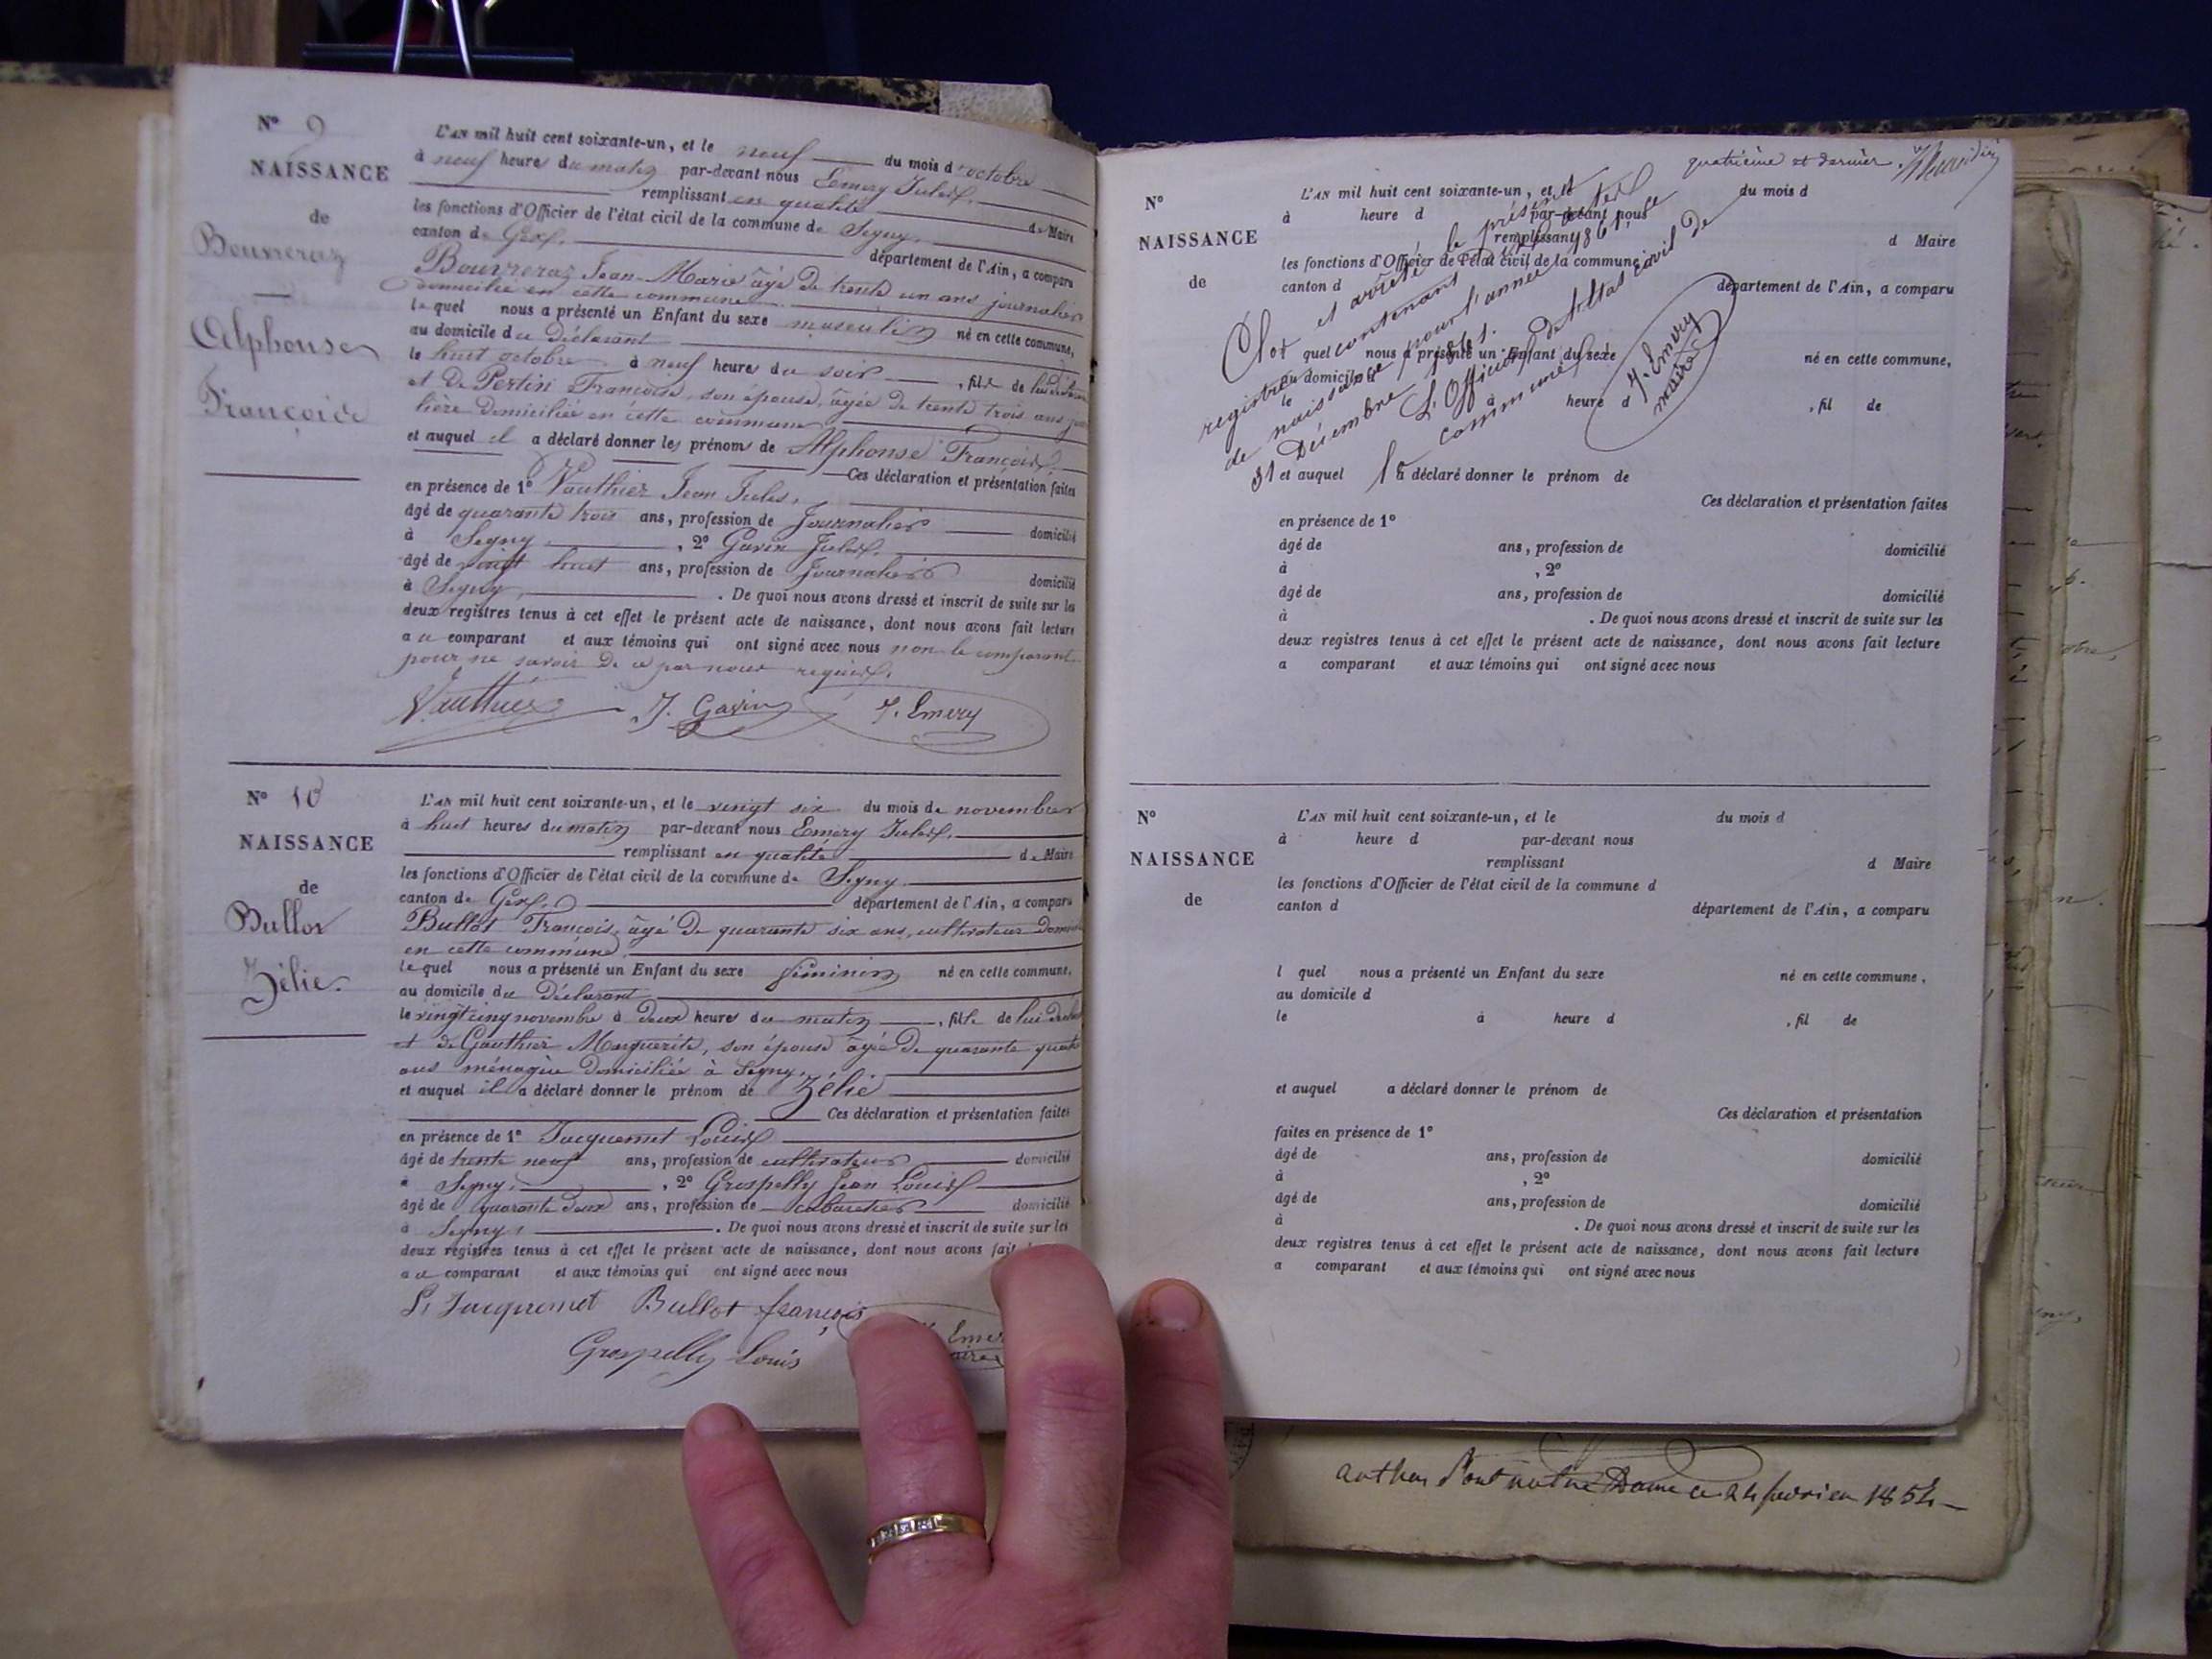 N° 9
NAISSANCE
de
Bouvreraz
Alphonse
François
L'AN mil huit cent soixante-un, et le neuf du mois d'octobre
à neuf heures du matin par-devant nous Emery Jules,
remplissant en qualité de Maire
les fonctions d'Officier de l'état civil de la commune de Segny,
canton de Gex, département de l'Ain, a comparu
Bouvreraz Jean-Marie âgé de trente un ans journalier
domicilié en cette commune
lequel nous a présenté un Enfant du sexe masculin né en cette commune,
au domicile du Déclarant
le huit octobre à neuf heures du soir, fils de lui
et de Pertin Françoise, son épouse, âgée de trente trois ans
lière domiciliée en cette commune
et auquel il a déclaré donner les prénoms de Alphonse François.
Ces déclaration et présentation faites
en présence de 1° Vauthier Jean Jules,
âgé de quarante trois ans, profession de Journalier domicilié
à Segny, 2° Gavin Jules,
âgé de vingt huit ans, profession de Journalier domicilié
à Segny, . De quoi nous avons dressé et inscrit de suite sur les
deux registres tenus à cet effet le présent acte de naissance, dont nous avons fait lecture
au comparant et aux témoins qui ont signé avec nous non le comparant
pour ne savoir de ce par nous requis.
Vauthier J. Gavin J. Emery
N° 10
NAISSANCE
de
Bullot
Zélie.
L'AN mil huit cent soixante-un, et le vingt six du mois de novembre
à huit heures du matin par-devant nous Emery Jules,
remplissant en qualité de Maire
les fonctions d'Officier de l'état civil de la commune de Segny
canton de Gex, département de l'Ain, a comparu
Bullot François, âgé de quarante six ans, cultivateur
en cette commune
lequel nous a présenté un Enfant du sexe féminin né en cette commune,
au domicile du Déclarant
le vingt cinq novembre à deux heures du matin, fille de lui
et de Gauthier Marguerite, son épouse âgée de quarante quatre
ans ménagère domiciliée à Segny,
et auquel il a déclaré donner le prénom de Zélie
Ces déclaration et présentation faites
en présence de 1° Jacquemet Louis
âgé de trente neuf ans, profession de cultivateur domicilié
à Segny, 2° Grospelly Jean Louis
âgé de quarante deux ans, profession de cabaretier domicilié
à Segny, . De quoi nous avons dressé et inscrit de suite sur les
deux registres tenus à cet effet le présent acte de naissance, dont nous avons fait
au comparant et aux témoins qui ont signé avec nous
L. Jacquemet Bullot françois
Grospelly Louis
quatrième et dernier.
N°
NAISSANCE
de
L'AN mil huit cent soixante-un, et le du mois d
à heure d par-devant nous
remplissant d Maire
les fonctions d'Officier de l'état civil de la commune d
canton d département de l'Ain, a comparu
l quel nous a présenté un Enfant du sexe né en cette commune,
au domicile d
le à heure d , fil de
et auquel a déclaré donner le prénom de
Ces déclaration et présentation faites
Clos et arrêté le présent
registre contenant actes
de naissance pour l'année 1861, le
31 Décembre 1861.
L'Officier de l'état civil de
la commune
J. Emery
maire
en présence de 1°
âgé de ans, profession de domicilié
à , 2°
âgé de ans, profession de domicilié
à . De quoi nous avons dressé et inscrit de suite sur les
deux registres tenus à cet effet le présent acte de naissance, dont nous avons fait lecture
a comparant et aux témoins qui ont signé avec nous
N°
NAISSANCE
de
L'AN mil huit cent soixante-un, et le du mois d
à heure d par-devant nous
remplissant d Maire
les fonctions d'Officier de l'état civil de la commune d
canton d département de l'Ain, a comparu
l quel nous a présenté un Enfant du sexe né en cette commune,
au domicile d
le à heure d , fil de
et auquel a déclaré donner le prénom de
Ces déclaration et présentation
faites en présence de 1°
âgé de ans, profession de domicilié
à , 2°
âgé de ans, profession de domicilié
à . De quoi nous avons dressé et inscrit de suite sur les
deux registres tenus à cet effet le présent acte de naissance, dont nous avons fait lecture
a comparant et aux témoins qui ont signé avec nous
Dame ce 24 fevrier 1854